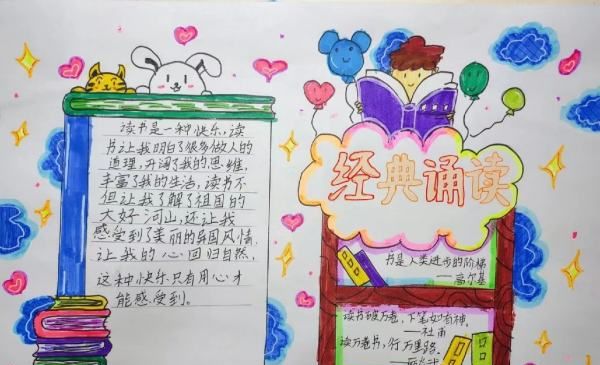 读书是一种快乐,读
书让我明白了很多做人的
道理,开阔了我的思维,
丰富了我的生活,读书不
但让我了解了祖国的
大好河山,还让我
感受到了美丽的异国风情,
让我的心回归自然,
这种快乐只有用心才
能感受到。
经典诵读
书是人类进步的阶梯
——高尔基
读书破万卷,下笔如有神。
——杜甫
读万卷书,行万里路。